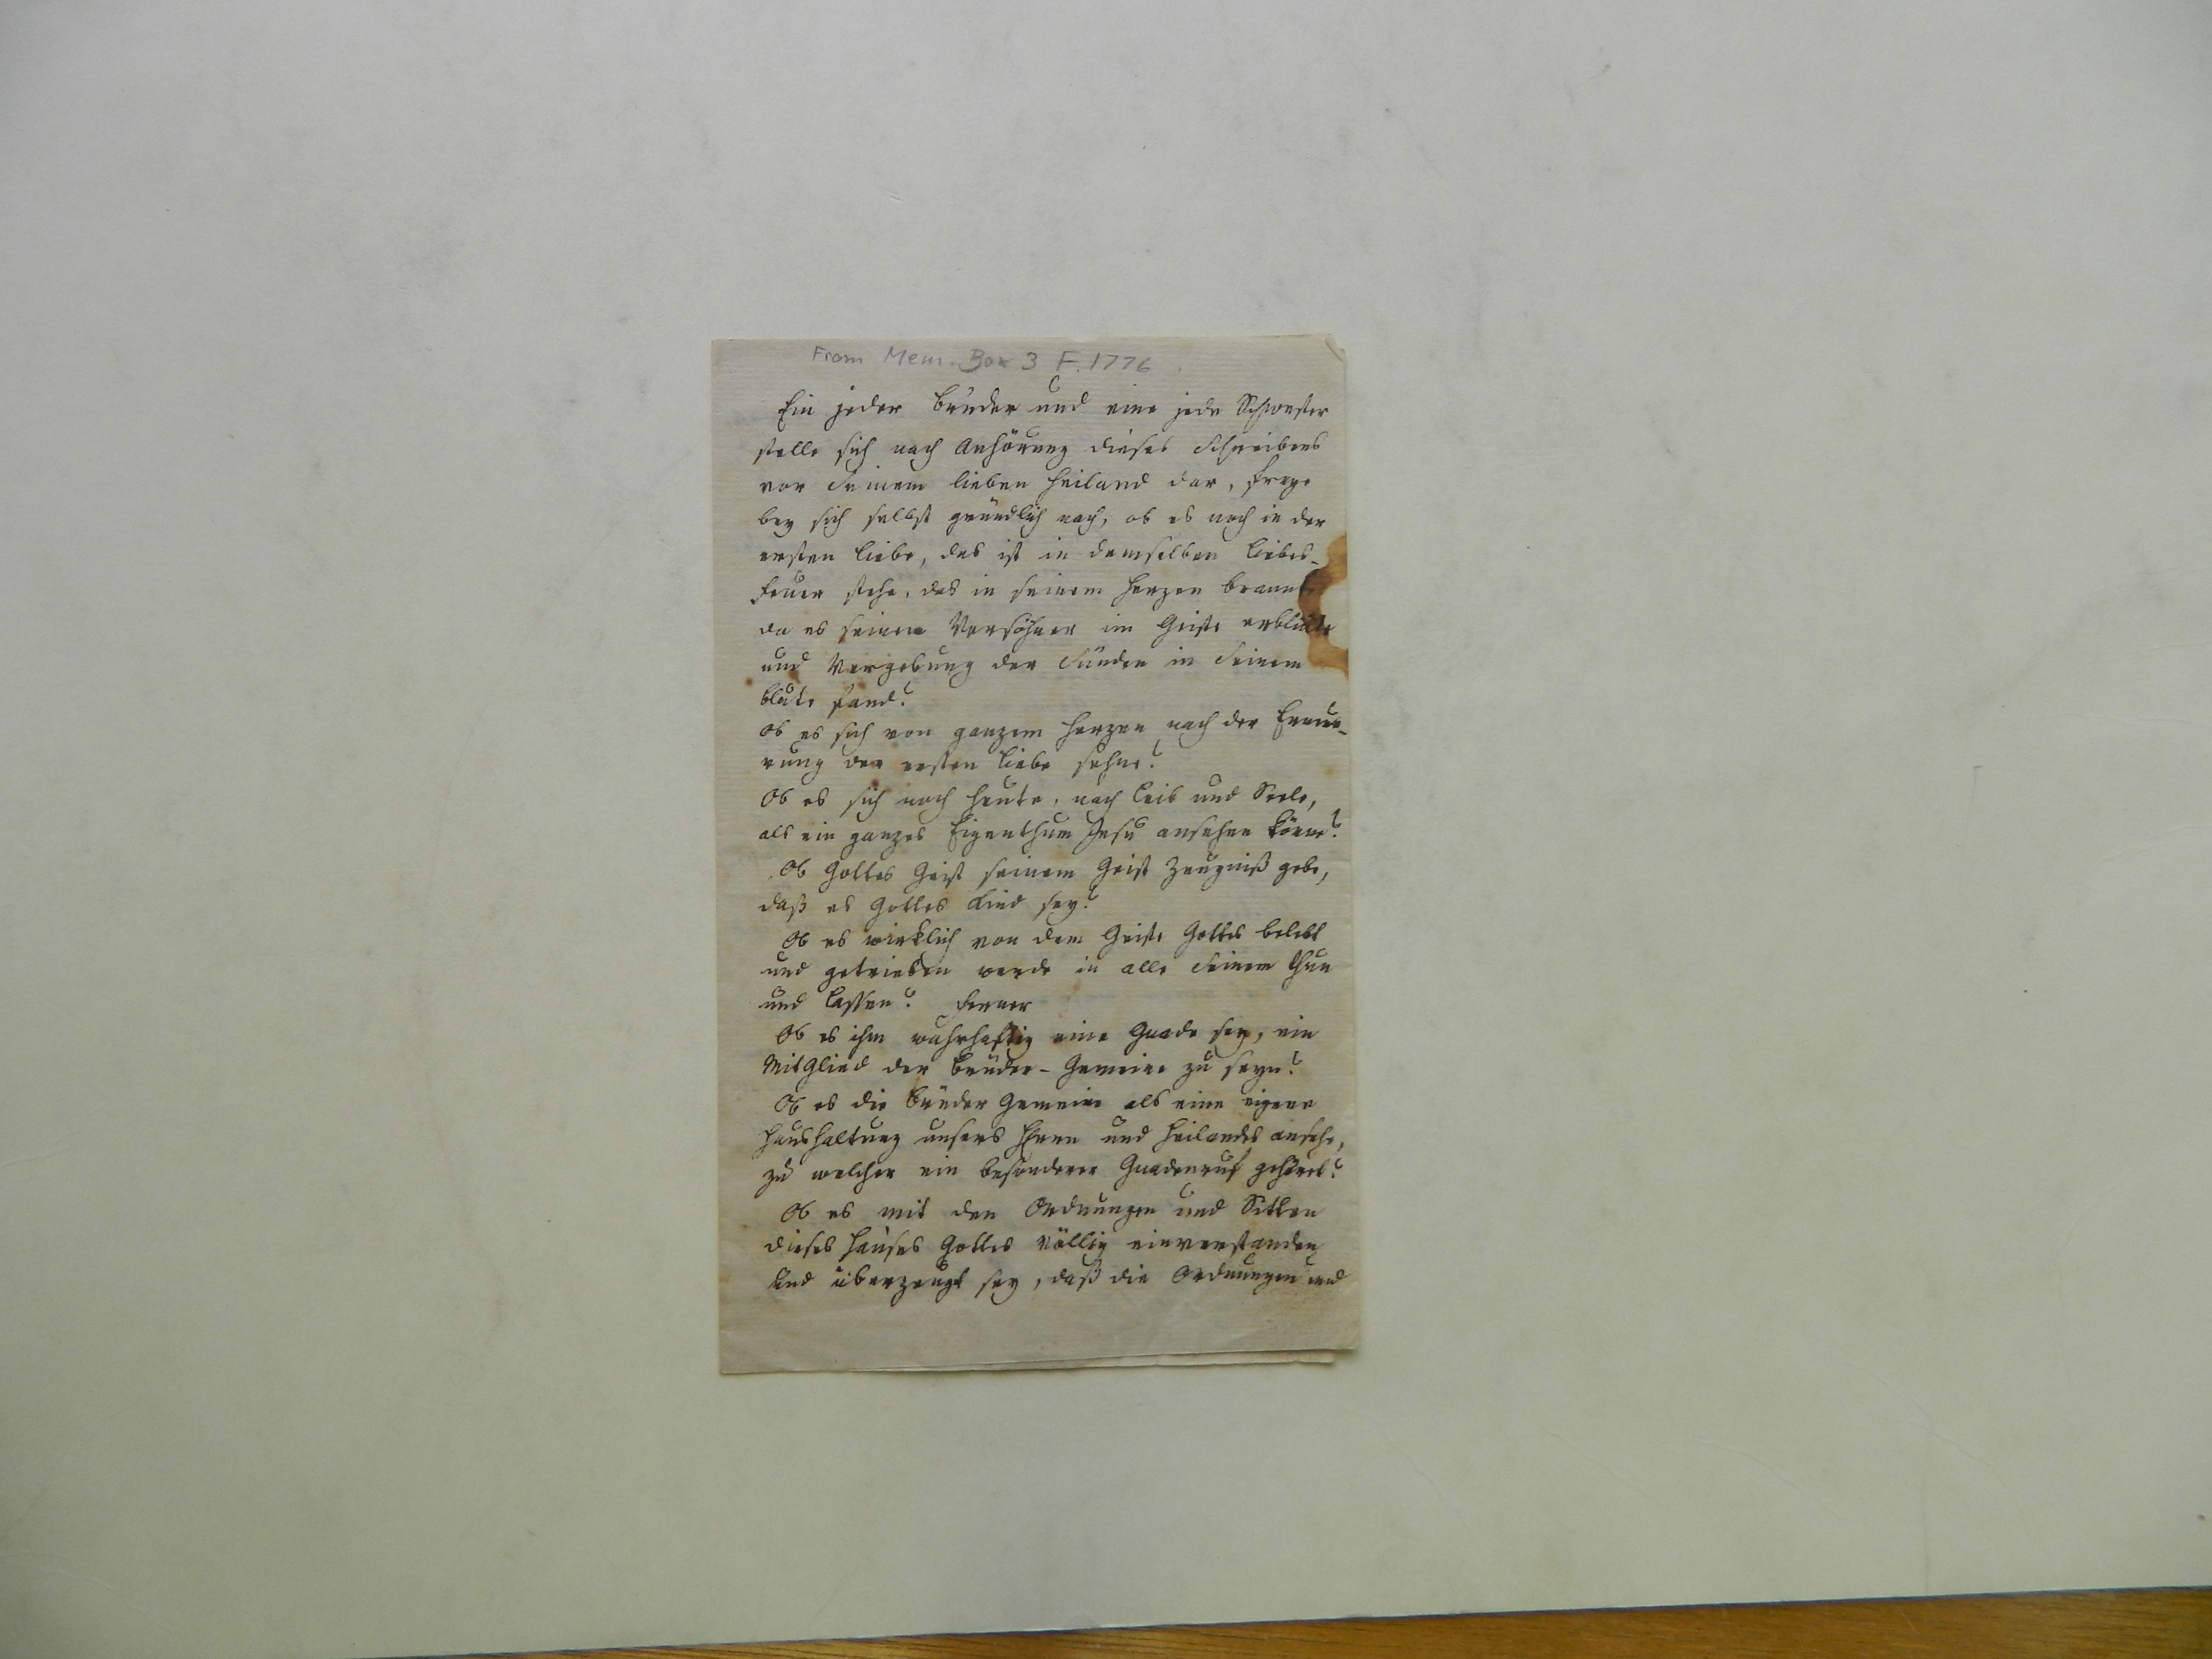 From Mem. Box 3 F. 1776
Ein jeder Bruder und eine jede Schwester
stelle sich nach Anhörung dieses Schreibens
vor Seinem lieben Heiland dar, frage
bey sich selbst gründlich nach, ob es noch in der
ersten Liebe, das ist in demselben Liebes-
Feuer stehe, das in seinem Herzen brannte
da es seinen Versöhner im Geiste erblickte
und Vergebung der Sünden in Seinem
Blute fand?
Ob es sich von ganzem Herzen nach der Erneue-
rung der ersten Liebe sehne?
Ob es sich noch heute, nach Leib und Seele,
als ein ganzes Eigenthum Jesu ansehen könne?
Ob Gottes Geist seinem Geist Zeugniß gebe,
daß es Gottes Kind sey?
Ob es wirklich von dem Geiste Gottes belebt
und getrieben werde in alle Seinem Thun
und Lassen? Ferner
Ob es ihm wahrhaftig eine Gnade sey, ein
Mitglied der Brüder-Gemeine zu seyn?
Ob es die Brüder Gemeine als eine eigene
Haushaltung unsers Herrn und Heilandes ansehe,
zu welcher ein besonderer Gnadenruf gehöret?
Ob es mit den Ordnungen und Sitten
dieses Hauses Gottes völlig einverstanden
und überzeugt sey, daß die Ordnungen und